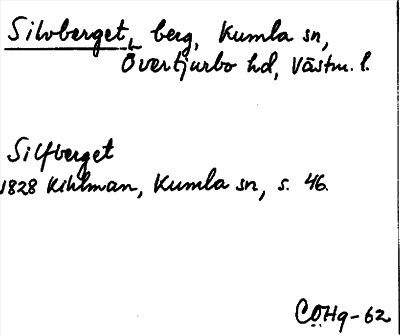 Silvberget, berg, Kumla sn,
Övertjurbo hd, Västm. l.
Silfberget
1828 Kihlman, Kumla sn, s. 46.
CÖHg-62